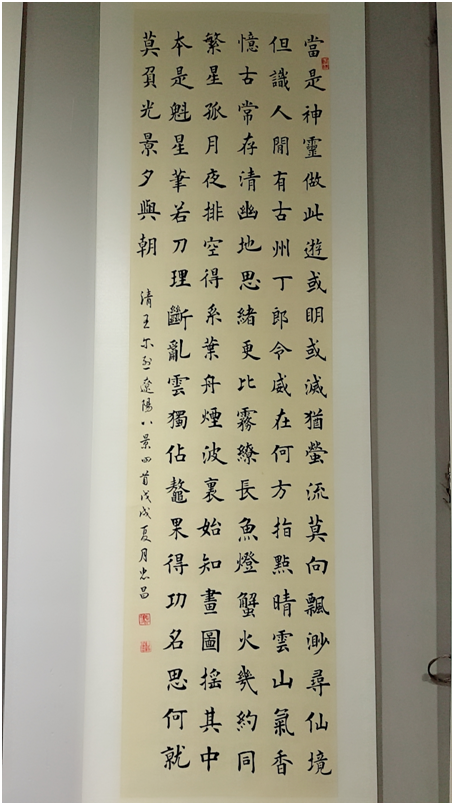 當是神靈做此遊或明或滅猶螢流莫向飄渺尋仙境
但識人閒有古州丁郎令威在何方指點晴雲山氣香
憶古常存清幽地思緒更比霧繚長魚燈蟹火幾約同
繁星孤月夜排空得系葉舟煙波裏始知畫圖搖其中
本是魁星筆若刀理斷亂雲獨佔鰲果得功名思何就
莫負光景夕與朝
清王尔烈遼陽八景四首戊戌夏月忠昌